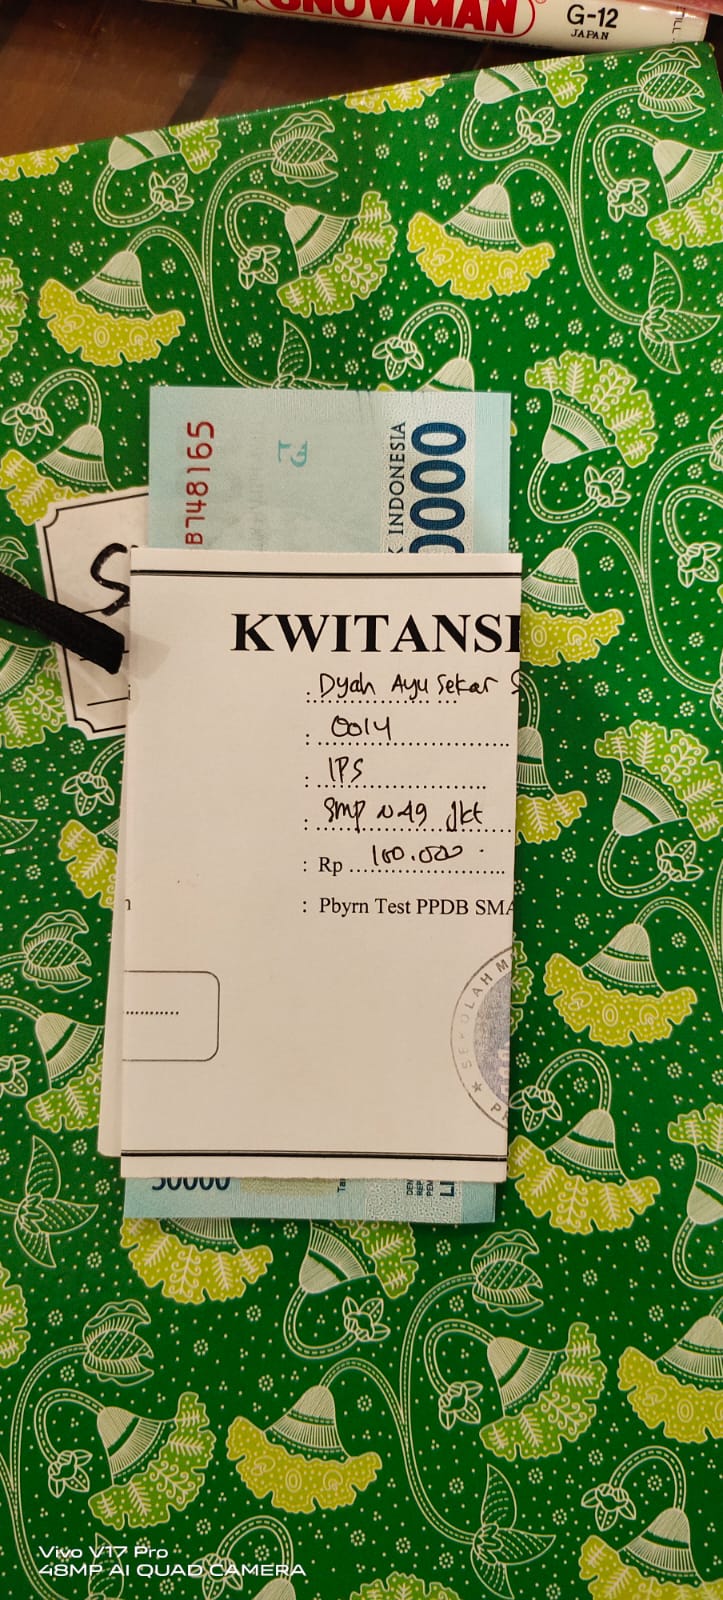 SNOWMAN
G-12
JAPAN
B748165
K INDONESIA
0000
KWITANSI
: Dyah Ayu Sekar S
: 0014
: IPS
: SMP N 49 Jkt
: Rp 100.000
: Pbyrn Test PPDB SMA
SEKOLAH M
50000
Vivo V17 Pro
48MP AI QUAD CAMERA